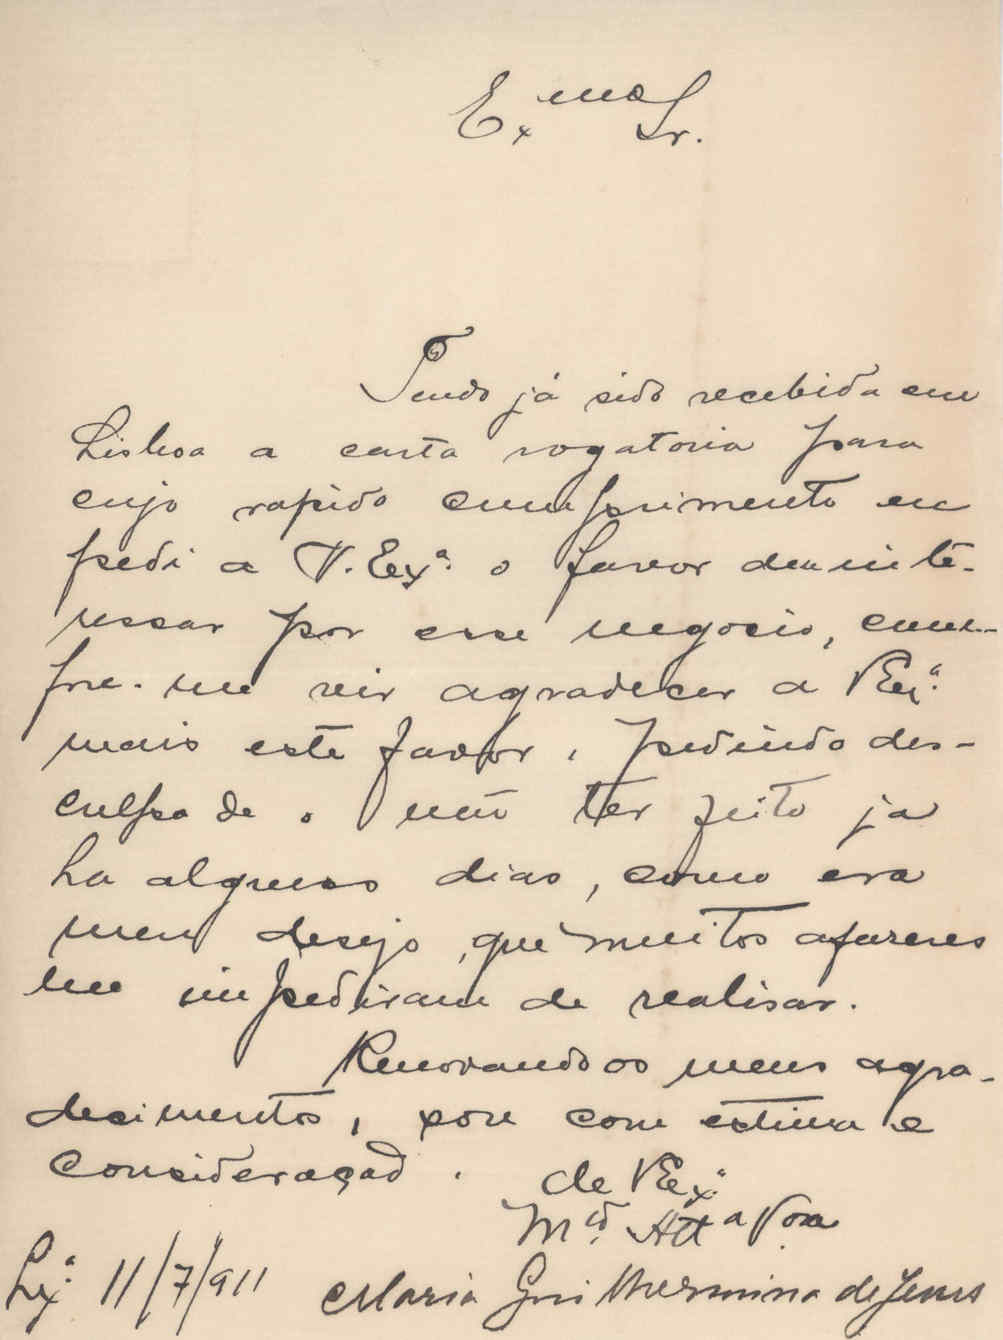 Ex.mo Sr.
Tendo já sido recebida em
Lisboa a carta rogatoria para
cujo rapido cumprimento eu
pedi a V. Exª. o favor de
ressar por esse negocio, cum-
pre-me vir agradecer a V Exª.
mais este favor, pedindo des-
culpa de o não ter feito ja
ha algums dias, como era
meu desejo, que muitos afazeres
me impediram de realisar.
Renovando os meus agra-
decimentos, sou com estima e
consideração.
de V Exª.
Mtº. Attª Vora
Lxª. 11/7/911
Maria Guilhermina de Jesus